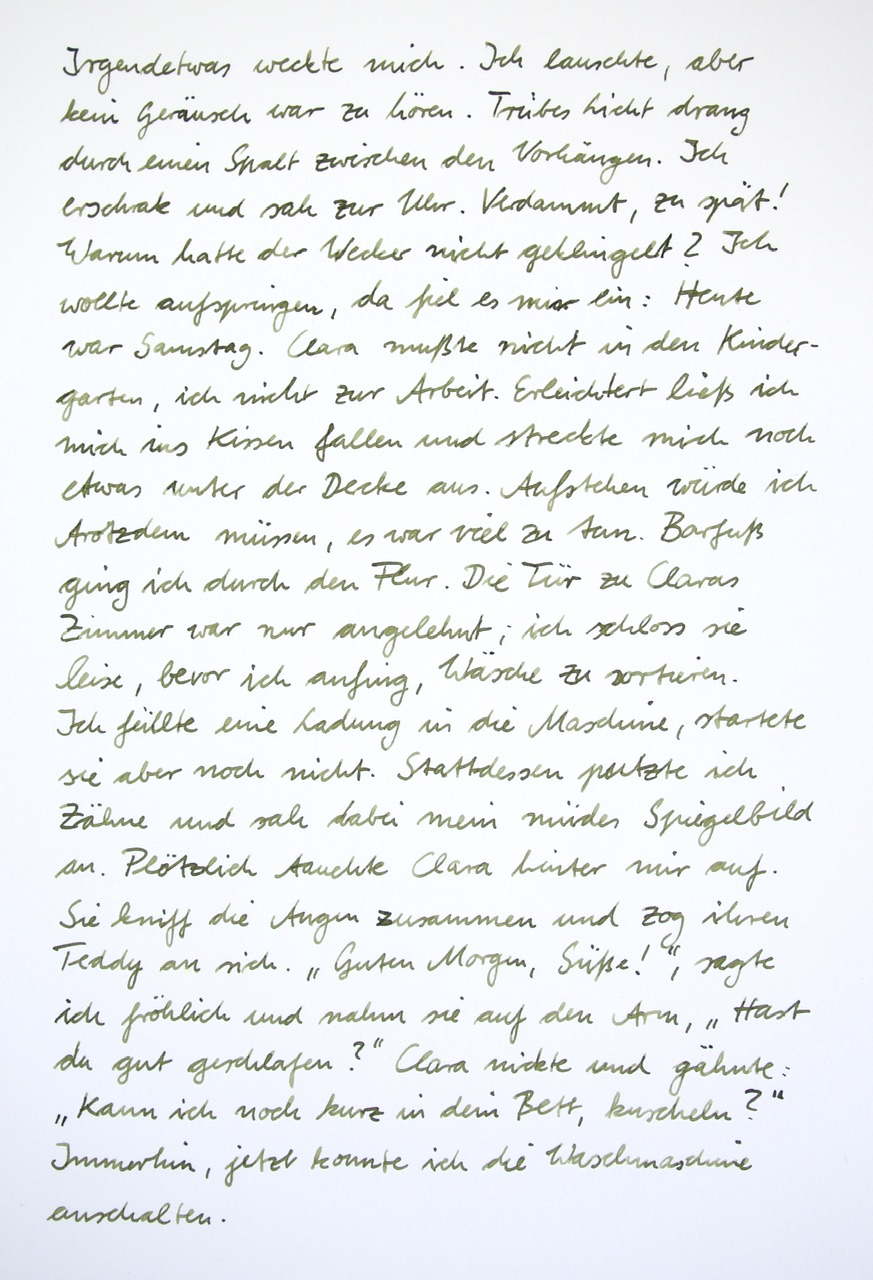 Irgendetwas weckte mich. Ich lauschte, aber
kein Geräusch war zu hören. Trübes Licht drang
durch einen Spalt zwischen den Vorhängen. Ich
erschrak und sah zur Uhr. Verdammt, zu spät!
Warum hatte der Wecker nicht geklingelt? Ich
wollte aufspringen, da fiel es mir ein: Heute
war Samstag. Clara mußte nicht in den Kinder-
garten, ich nicht zur Arbeit. Erleichtert ließ ich
mich ins Kissen fallen und streckte mich noch
etwas unter der Decke aus. Aufstehen würde ich
trotzdem müssen, es war viel zu tun. Barfuß
ging ich durch den Flur. Die Tür zu Claras
Zimmer war nur angelehnt; ich schloss sie
leise, bevor ich anfing, Wäsche zu sortieren.
Ich füllte eine Ladung in die Maschine, startete
sie aber noch nicht. Stattdessen putzte ich
Zähne und sah dabei mein müdes Spiegelbild
an. Plötzlich tauchte Clara hinter mir auf.
Sie kniff die Augen zusammen und zog ihren
Teddy an sich. „Guten Morgen, Süße!“, sagte
ich fröhlich und nahm sie auf den Arm, „Hast
du gut geschlafen?“ Clara nickte und gähnte:
„Kann ich noch kurz in dein Bett, kuscheln?“
Immerhin, jetzt konnte ich die Waschmaschine
anschalten.